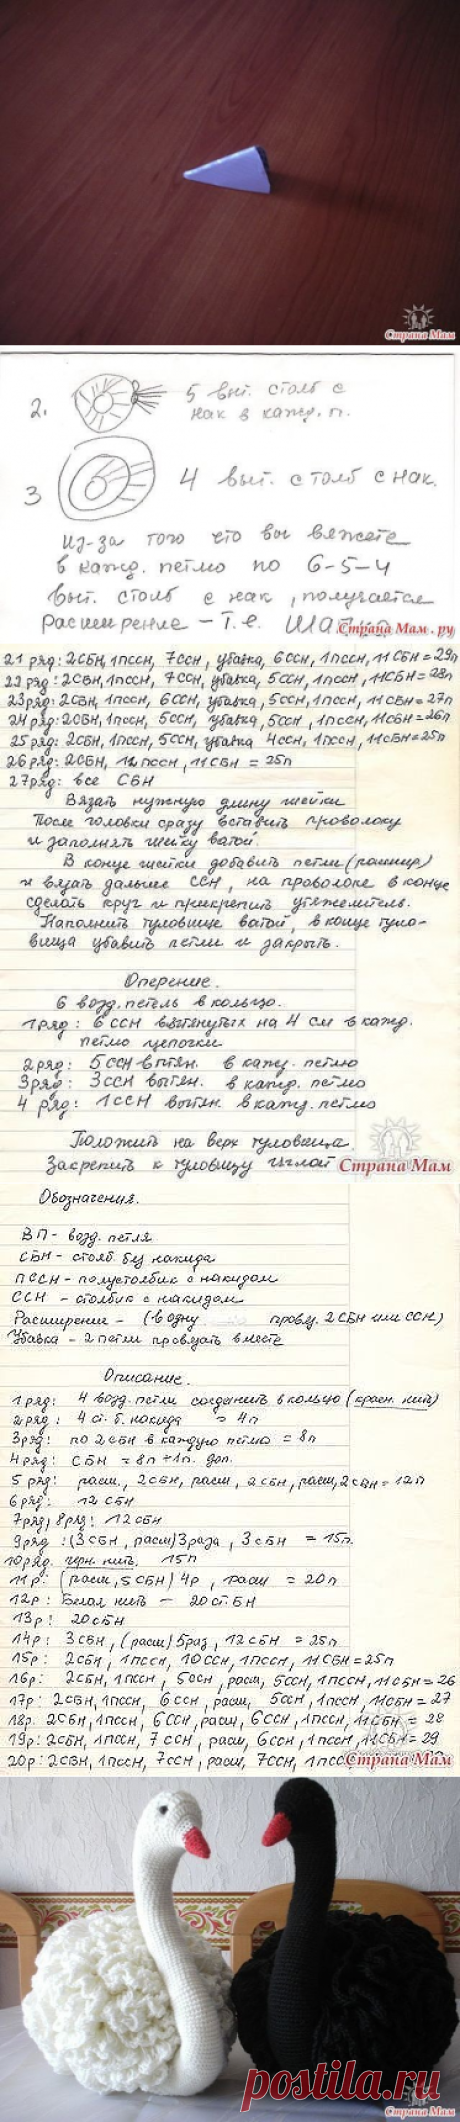 Страна Мам
2. 5 выт. столб с
нак в кажд. п.
3 4 выт. столб с нак.
Из-за того что вы вяжете
в кажд. петлю по 6-5-4
выт. столб с нак, получается
расширение - т.е.
Страна Мам.ру
21 ряд: 2СБН, 1ПССН, 7ССН, убавка, 6ССН, 1ПССН, 11СБН=29п
22 ряд: 2СБН, 1ПССН, 7ССН, убавка, 5ССН, 1ПССН, 11СБН=28п
23 ряд: 2СБН, 1ПССН, 6ССН, убавка, 5ССН, 1ПССН, 11СБН=27п
24 ряд: 2СБН, 1ПССН, 5ССН, убавка, 5ССН, 1ПССН, 11СБН=26п
25 ряд: 2СБН, 1ПССН, 5ССН, убавка 4ССН, 1ПССН, 11СБН=25п
26 ряд: 2СБН, 12ПССН, 11СБН = 25п
27 ряд: все СБН
Вязать нужную длину шейки
После головки сразу вставить проволоку
и заполнять шейку ватой.
В конце шейки добавить петли (расшир)
и вязать дальше ССН, на проволоке в конце
сделать круг и прикрепить утяжелитель.
Наполнить туловище ватой, в конце туло-
вища убавить петли и закрыть.
Оперение.
6 возд. петель в кольцо.
1 ряд: 6 ССН вытянутых на 4 см в кажд.
петлю цепочки
2 ряд: 5ССН вытян. в кажд. петлю
3 ряд: 3ССН вытян. в кажд. петлю
4 ряд: 1ССН вытян. в кажд. петлю
Положить на верх туловища.
Закрепить к туловищу иглой
Страна Мам
Обозначения.
ВП - возд. петля
СБН - столб. без накида
ПССН - полустолбик с накидом
ССН - столбик с накидом
Расширение - (в одну провяз. 2 СБН или ССН)
Убавка - 2 петли провязать вместе
Описание.
1 ряд: 4 возд. петли соединить в кольцо (красн. нить)
2 ряд: 4 ст. б. накида = 4п
3 ряд: по 2СБН в каждую петлю = 8п
4 ряд: СБН = 8п + 1п. доп.
5 ряд: расш., 2СБН, расш, 2СБН, расш, 2СБН = 12п
6 ряд: 12 СБН
7 ряд, 8 ряд: 12 СБН
9 ряд: (3СБН, расш) 3раза, 3СБН = 15п.
10 ряд. черн. нить. 15п
11р: (расш, 5СБН) 4р, расш = 20п
12р: Белая нить - 20 ст. БН
13р: 20СБН
14р: 3СБН, (расш) 5раз, 12СБН = 25п
15р: 2СБН, 1ПССН, 10ССН, 1ПССН, 11СБН = 25п
16р: 2СБН, 1ПССН, 5ССН, расш, 5ССН, 1ПССН, 11СБН = 26
17р: 2СБН, 1ПССН, 6ССН, расш, 5ССН, 1ПССН, 11СБН = 27
18р. 2СБН, 1ПССН, 6ССН, расш, 6ССН, 1ПССН, 11СБН = 28
19р: 2СБН, 1ПССН, 7ССН, расш, 6ССН, 1ПССН, 11СБН = 29
20р: 2СБН, 1ПССН, 7ССН, расш, 7ССН, 1ПСС
Страна Мам
postila.ru
Страна Мам